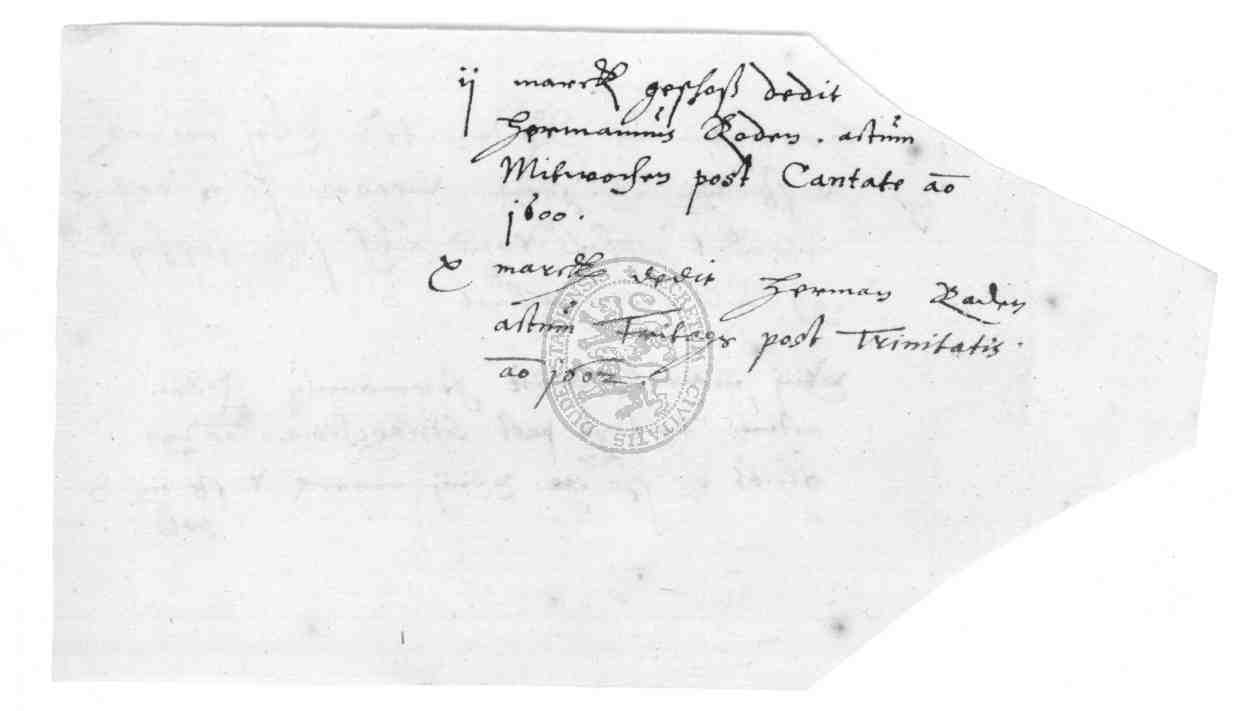 ij marck geschoß dedit
Hermannus Roden. actum
Mitwochen post Cantate ao
1600.
x marck dedit Herman Raden
actum Freitags post Trinitatis.
ao 1602.
SECRETUM CIVITATIS DUDERSTA